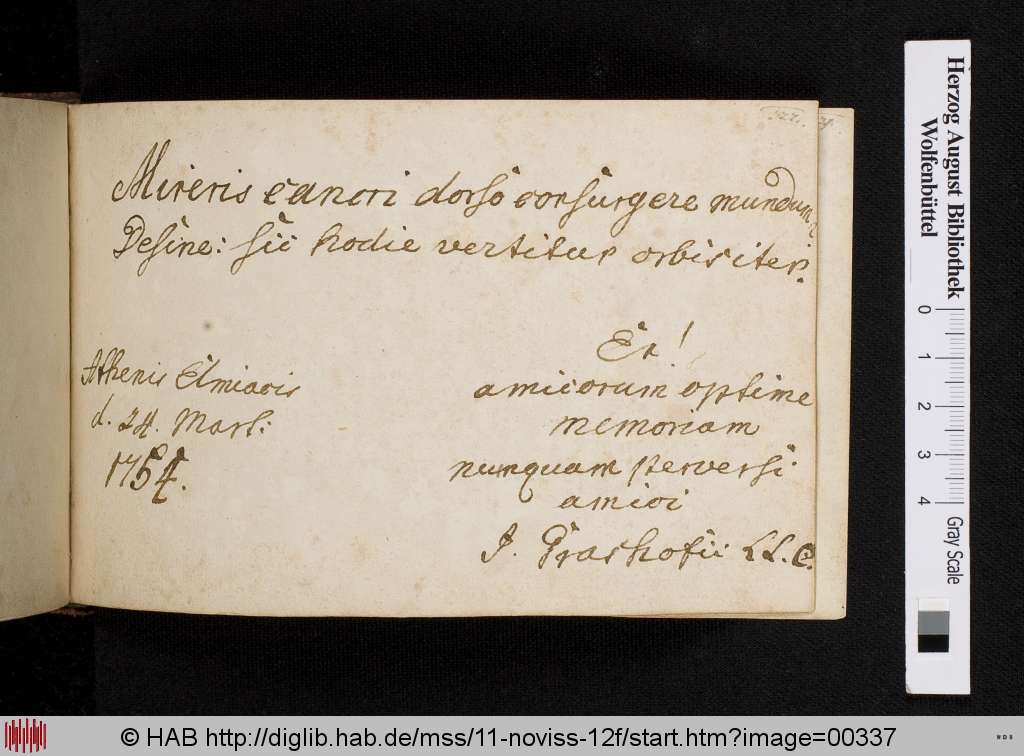 Mireris cancri dorso consurgere mundum?
Desine: sic hodie vertitur orbis iter.
Athenis Elmiacis
d. 24. Mart:
1754.
En!
amicorum optime
memoriam
nunquam perversi
amici
J. Grashofii LL.C.
Herzog August Bibliothek
Wolfenbüttel
0
1
2
3
4
Gray Scale
© HAB http://diglib.hab.de/mss/11-noviss-12f/start.htm?image=00337